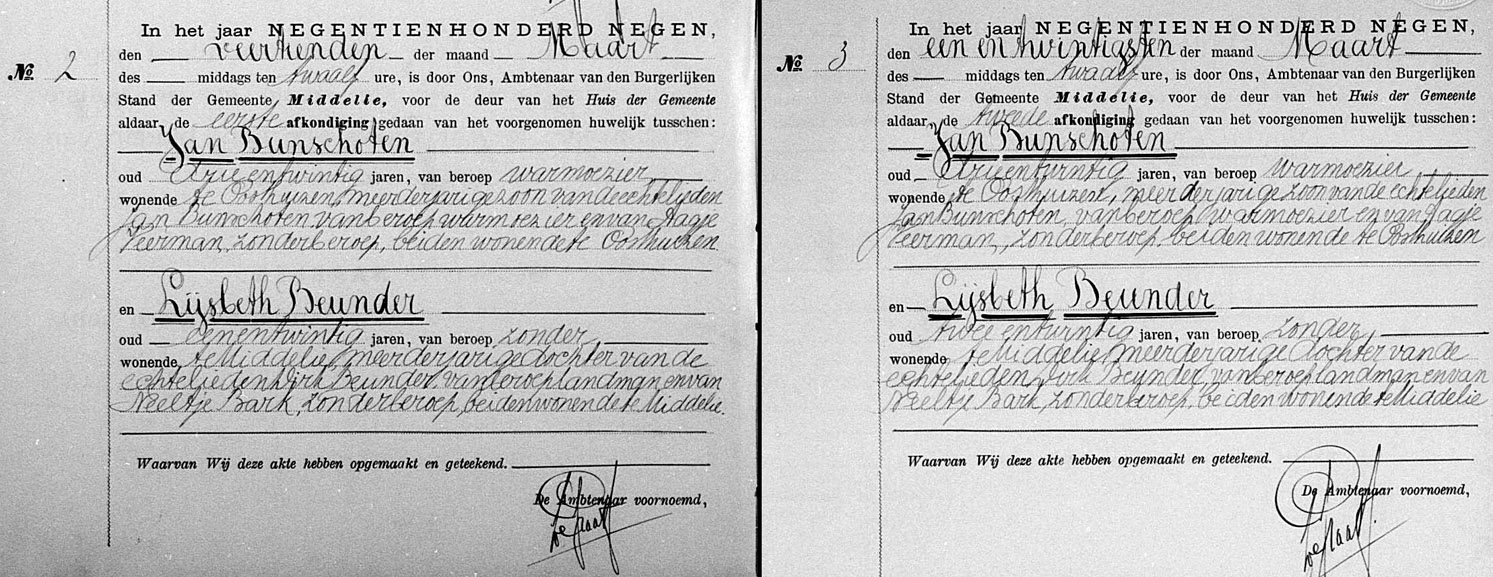 In het jaar NEGENTIENHONDERD NEGEN,
den veertienden der maand Maart
№ 2
des middags ten twaalf ure, is door Ons, Ambtenaar van den Burgerlijken
Stand der Gemeente Middelie, voor de deur van het Huis der Gemeente
aldaar, de eerste afkondiging gedaan van het voorgenomen huwelijk tusschen:
Jan Bunschoten
oud drie en twintig jaren, van beroep warmoezier
wonende te Oosthuizen, meerderjarige zoon van de echtelieden
Jan Bunschoten van beroep warmoezier en van Aagje
Veerman, zonder beroep, beiden wonende te Oosthuizen
en Lijsbeth Beunder
oud eenentwintig jaren, van beroep zonder,
wonende te Middelie, meerderjarige dochter van de
echtelieden Dirk Beunder, van beroep landman en van
Neeltje Bark, zonder beroep, beiden wonende te Middelie.
Waarvan Wij deze akte hebben opgemaakt en geteekend.
De Ambtenaar voornoemd,
In het jaar NEGENTIENHONDERD NEGEN,
den een en twintigsten der maand Maart
№ 3
des middags ten twaalf ure, is door Ons, Ambtenaar van den Burgerlijken
Stand der Gemeente Middelie, voor de deur van het Huis der Gemeente
aldaar, de tweede afkondiging gedaan van het voorgenomen huwelijk tusschen:
Jan Bunschoten
oud drie en twintig jaren, van beroep warmoezier
wonende te Oosthuizen, meerderjarige zoon van de echtelieden
Jan Bunschoten, van beroep warmoezier en van Aagje
Veerman, zonder beroep, beiden wonende te Oosthuizen
en Lijsbeth Beunder
oud twee en twintig jaren, van beroep zonder,
wonende te Middelie, meerderjarige dochter van de
echtelieden Dirk Beunder, van beroep landman en van
Neeltje Bark, zonder beroep, beiden wonende te Middelie
Waarvan Wij deze akte hebben opgemaakt en geteekend.
De Ambtenaar voornoemd,